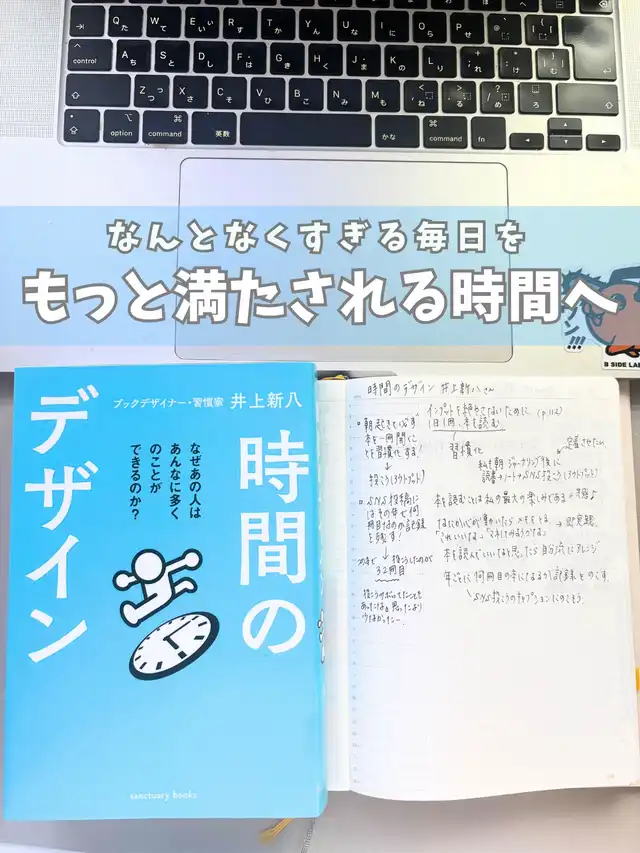 Q た
W て
E い
R す
T か
Y ん
U な
I に
O ら
P せ
control
A ち
S と
D し
F は
G き
H く
J ま
K の
L り
Z つ
X さ
C そ
V ひ
B こ
N み
M も
option
command
英数
かな
command
fn
なんとなくすぎる毎日を
もっと満たされる時間へ
B SIDE LAB
ブックデザイナー・習慣家 井上新八
時間の
デザイン
なぜあの人は
あんなに多く
のことが
できるのか?
sanctuary books
時間のデザイン 井上新八さん
インプットを絶やさないために (p.112)
1日1冊、本を読む
習慣化
定着させたい
私も朝ジャーナリング後に
読書→ノート→SNS投こう(アウトプット)
本を読むことは私の最大の楽しみである
年ごとに何冊目の本になるか記録をのこす
SNS投こうのキャプションにのこそう
朝起きたら必ず
本を一冊開くこ
とを習慣化する!
投こう(アウトプット)
SNS投稿に
はその年で何
冊目なのか記録
を残す!
32冊目